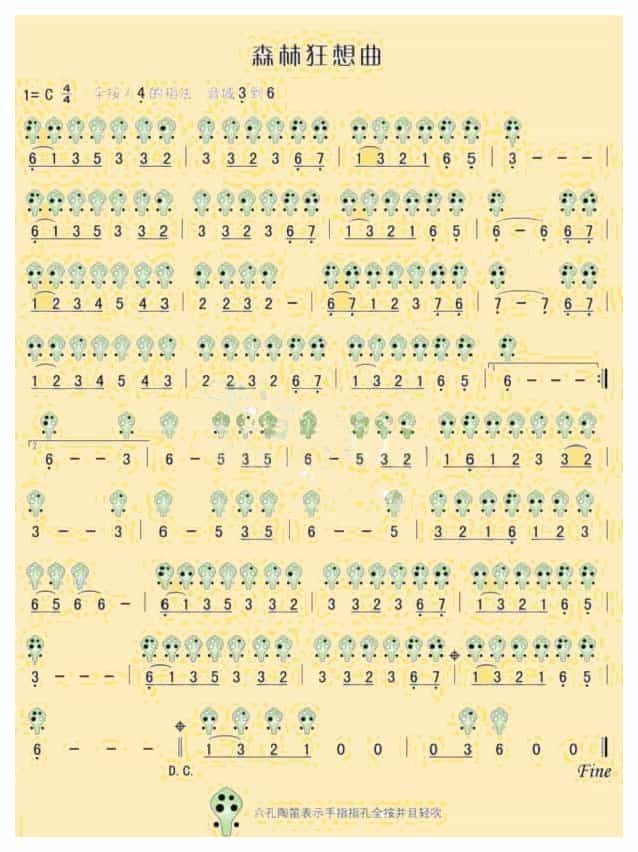 森林狂想曲
1= C 4/4 全按为4的指法 音域3到6
6 1 3 5 3 3 2 | 3 3 2 3 6 7 | 1 3 2 1 6 5 | 3 - - - |
6 1 3 5 3 3 2 | 3 3 2 3 6 7 | 1 3 2 1 6 5 | 6 - 6 6 7 |
1 2 3 4 5 4 3 | 2 2 3 2 - | 6 7 1 2 3 7 6 | 7 - 7 6 7 |
1 2 3 4 5 4 3 | 2 2 3 2 6 7 | 1 3 2 1 6 5 | 1 6 - - - :|
2 6 - - 3 | 6 - 5 3 5 | 6 - 5 3 2 | 1 6 1 2 3 3 2 |
3 - - 3 | 6 - 5 3 5 | 6 - - 5 | 3 2 1 6 1 2 3 |
6 5 6 6 - | 6 1 3 5 3 3 2 | 3 3 2 3 6 7 | 1 3 2 1 6 5 |
3 - - - | 6 1 3 5 3 3 2 | 3 3 2 3 6 7 | 1 3 2 1 6 5 |
6 - - - || 1 3 2 1 0 0 | 0 3 6 0 0 ||
D.C. Fine
六孔陶笛表示手指指孔全按并且轻吹